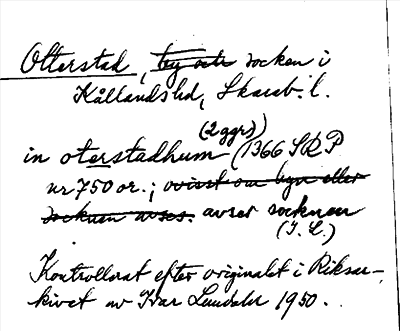 Otterstad, by och socken i
Kållandshd, Skarab. l.
(2 ggr)
in oterstadhum (1366 SRP
nr 750 or.; ovisst om byn eller
socknen avses. avser socknen
(I. L.)
Kontrollerat efter originalet i Riksar-
kivet av Ivar Lundahl 1950.